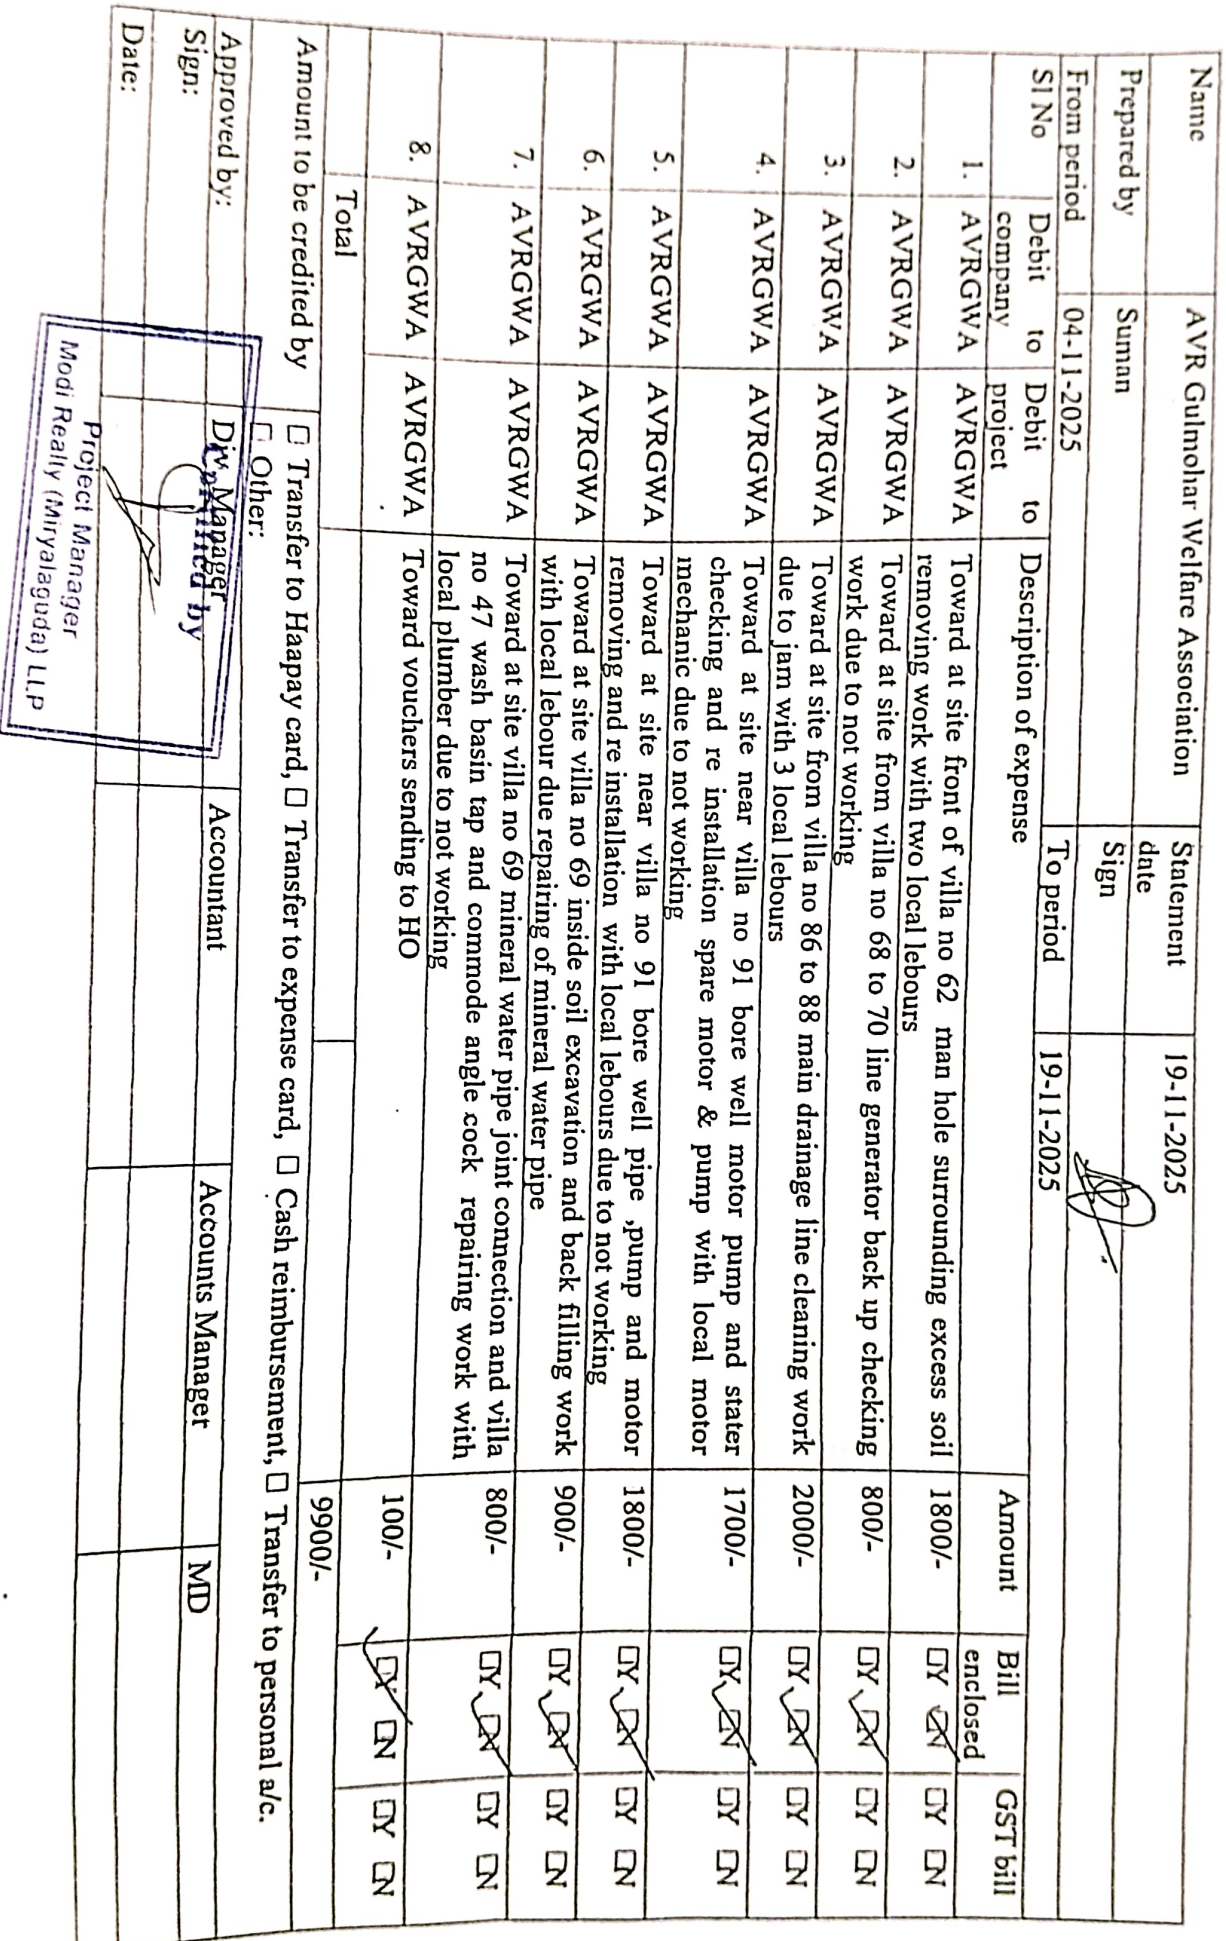 Name AVR Gulmohar Welfare Association Statement date 19-11-2025
Prepared by Suman Sign
From period 04-11-2025 To period 19-11-2025
Sl No Debit to company Debit to project Description of expense Amount Bill enclosed GST bill
1. AVRGWA AVRGWA Toward at site front of villa no 62 man hole surrounding excess soil 1800/- ☐Y ☑N ☐Y ☐N
removing work with two local lebours
2. AVRGWA AVRGWA Toward at site from villa no 68 to 70 line generator back up checking 800/- ☐Y ☑N ☐Y ☐N
work due to not working
3. AVRGWA AVRGWA Toward at site from villa no 86 to 88 main drainage line cleaning work 2000/- ☐Y ☑N ☐Y ☐N
due to jam with 3 local lebours
4. AVRGWA AVRGWA Toward at site near villa no 91 bore well motor pump and stater 1700/- ☐Y ☑N ☐Y ☐N
checking and re installation spare motor & pump with local motor
mechanic due to not working
5. AVRGWA AVRGWA Toward at site near villa no 91 bore well pipe ,pump and motor 1800/- ☐Y ☑N ☐Y ☐N
removing and re installation with local lebours due to not working
6. AVRGWA AVRGWA Toward at site villa no 69 inside soil excavation and back filling work 900/- ☐Y ☑N ☐Y ☐N
with local lebour due repairing of mineral water pipe
7. AVRGWA AVRGWA Toward at site villa no 69 mineral water pipe joint connection and villa 800/- ☐Y ☑N ☐Y ☐N
no 47 wash basin tap and commode angle cock repairing work with
local plumber due to not working
8. AVRGWA AVRGWA Toward vouchers sending to HO 100/- ☑Y ☐N ☐Y ☐N
Total 9900/-
Amount to be credited by ☐ Transfer to Haapay card, ☐ Transfer to expense card, ☐ Cash reimbursement, ☐ Transfer to personal a/c.
☐ Other:
Approved by: Div. Manager Accountant Accounts Manager MD
Sign:
Date:
Certified by
Project Manager
Modi Realty (Miryalaguda) LLP